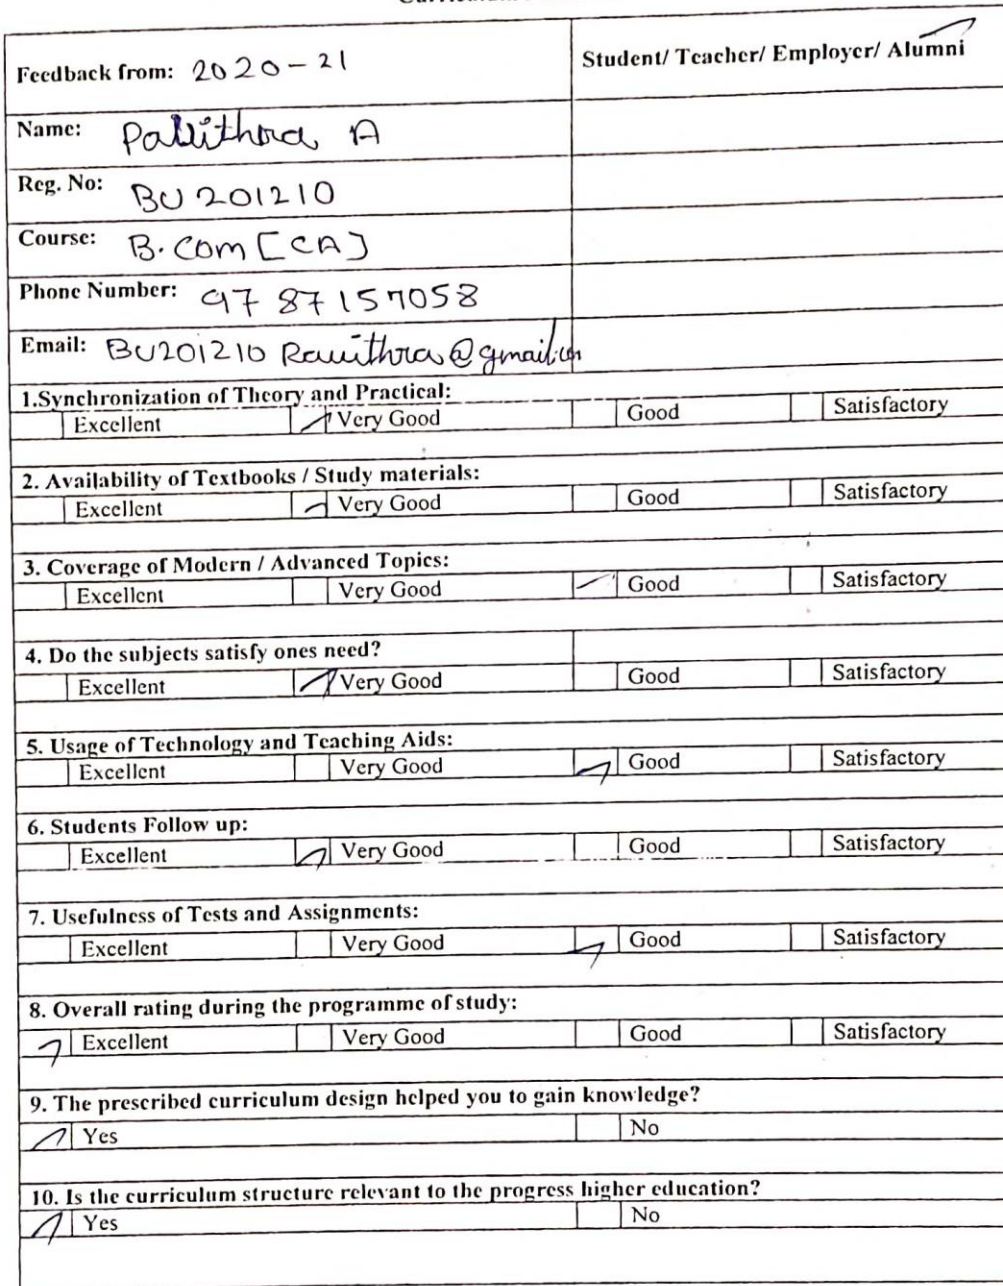 Feedback from: 2020-21 Student/ Teacher/ Employer/ Alumni
Name: Pavithra A
Reg. No: BU 201210
Course: B.Com [CA]
Phone Number: 97 87 157058
Email: BU201210 Pavithra@gmail.com
1.Synchronization of Theory and Practical:
Excellent Very Good Good Satisfactory
2. Availability of Textbooks / Study materials:
Excellent Very Good Good Satisfactory
3. Coverage of Modern / Advanced Topics:
Excellent Very Good Good Satisfactory
4. Do the subjects satisfy ones need?
Excellent Very Good Good Satisfactory
5. Usage of Technology and Teaching Aids:
Excellent Very Good Good Satisfactory
6. Students Follow up:
Excellent Very Good Good Satisfactory
7. Usefulness of Tests and Assignments:
Excellent Very Good Good Satisfactory
8. Overall rating during the programme of study:
Excellent Very Good Good Satisfactory
9. The prescribed curriculum design helped you to gain knowledge?
Yes No
10. Is the curriculum structure relevant to the progress higher education?
Yes No